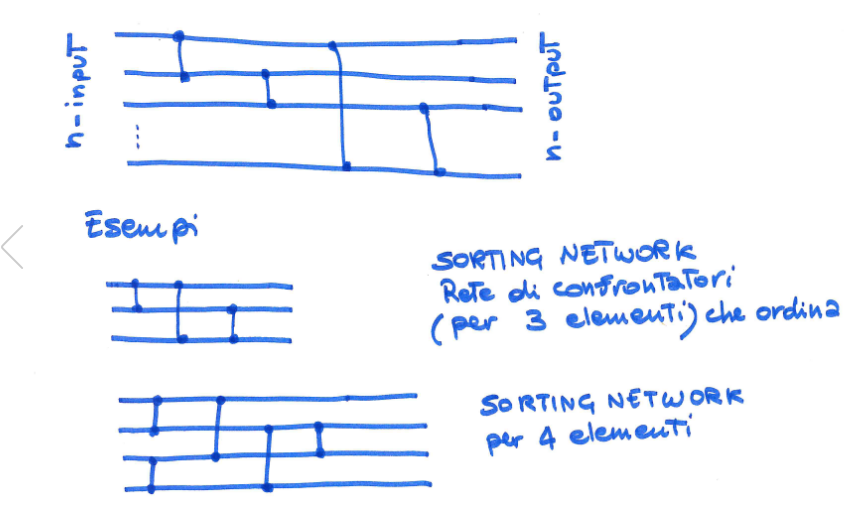 n-input
n-output
⋮
Esempi
SORTING NETWORK
Rete di confrontatori
(per 3 elementi) che ordina
SORTING NETWORK
per 4 elementi